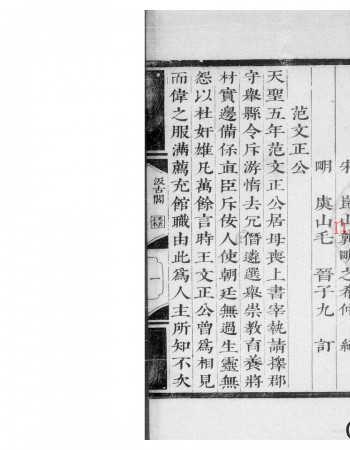 明　虞山毛　晉子九　訂
范文正公
天聖五年范文正公居母喪上書宰執請擇郡
守舉縣令斥游惰去冗僭遴選舉崇教育養將
材實邊備保直臣斥佞人使朝廷無過生靈無
怨以杜奸雄凡萬餘言時王文正公曾為相見
而偉之服滿薦充館職由此為人主所知不次
汲古閣
一